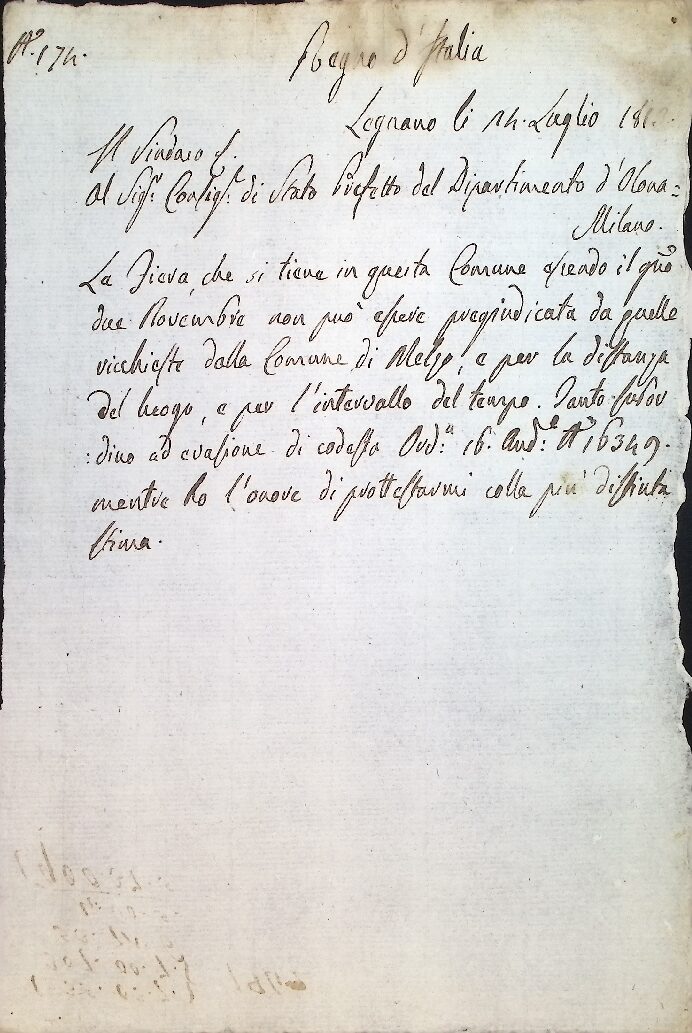 N.° 174.
Regno d'Italia
Legnano li 14. Luglio 181
Il Sindaco f.
Al Sig.r Consig.r di Stato Prefetto del Dipartimento d'Olona=
Milano.
La Fiera, che si tiene in questa Comune essendo il gno
due Novembre non può essere pregiudicata da quelle
richieste dalla Comune di Melzo, e per la distanza
del luogo, e per l'intervallo del tempo. Tanto subor
:dino ad evasione di codesta Ord.a 16. And.e N.° 16349.
mentre ho l'onore di prottestarmi colla più distinta
stima.